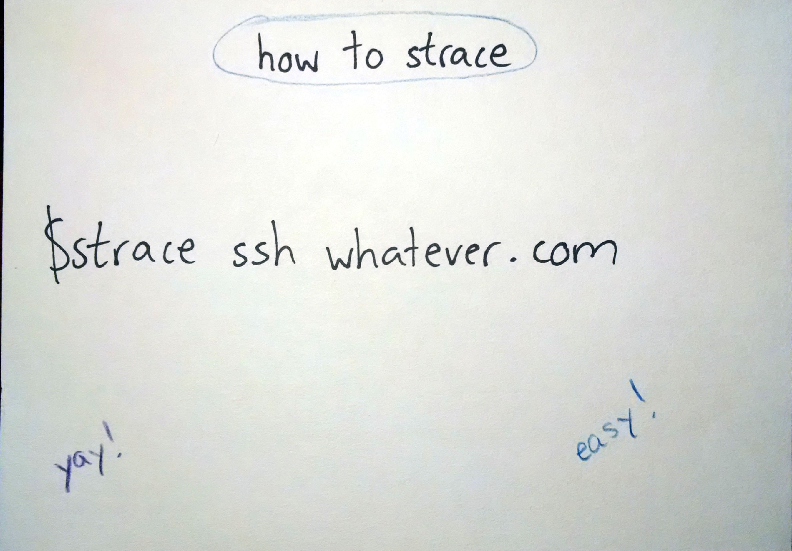 how to strace
$strace ssh whatever.com
yay!
easy!